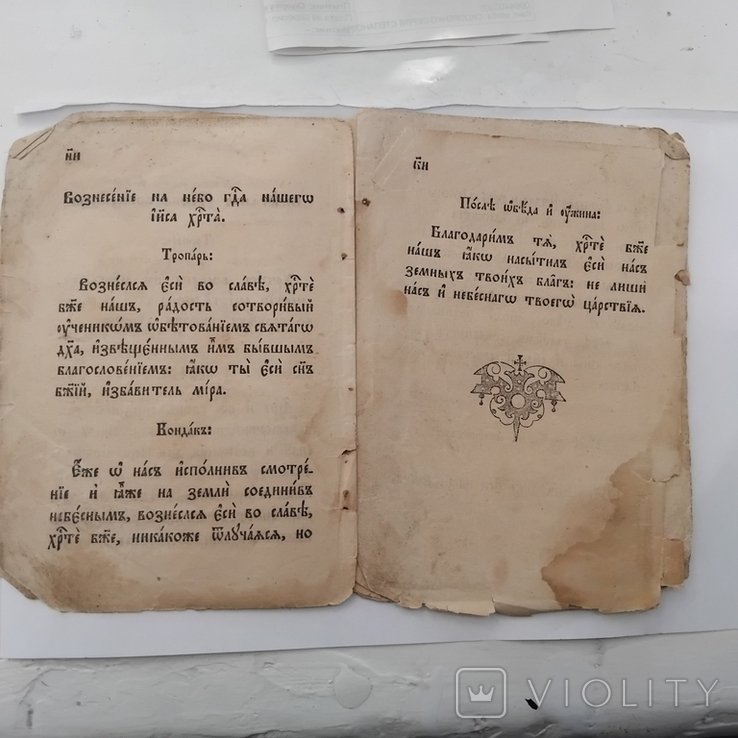 н҃и
Вознесе́нїе на не́бо гдⷭ҇а на́шегѡ
і҆и҃са хрⷭ҇та̀.
Тропа́рь:
Возне́слсѧ є҆сѝ во сла́вѣ, хрⷭ҇тѐ
бж҃е на́шъ, ра́дость сотвори́вый
ᲂу҆ченикѡ́мъ ѡ҆бѣтова́нїемъ свѧта́гѡ
дх҃а, и҆звѣще́ннымъ и҆̀мъ бы́вшымъ
благослове́нїемъ: ꙗ҆́кѡ ты̀ є҆сѝ сн҃ъ
бж҃їй, и҆зба́витель мі́ра.
Конда́къ:
Є҆́же ѡ҆ на́съ и҆спо́лнивъ смотре́-
нїе и҆ ꙗ҆̀же на землѝ соедини́въ
небє́снымъ, возне́слсѧ є҆сѝ во сла́вѣ,
хрⷭ҇тѐ бж҃е, ника́коже ѿлуча́ѧсѧ, но
к҃и
По́слѣ ѡ҆бѣ́да и҆ ᲂу҆́жина:
Благодари́мъ тѧ̀, хрⷭ҇тѐ бж҃е
на́шъ ꙗ҆́кѡ насы́тилъ є҆сѝ на́съ
земны́хъ твои́хъ бла̑гъ: не лишѝ
на́съ и҆ небе́снагѡ твоегѡ̀ ца́рствїѧ.
VIOLITY